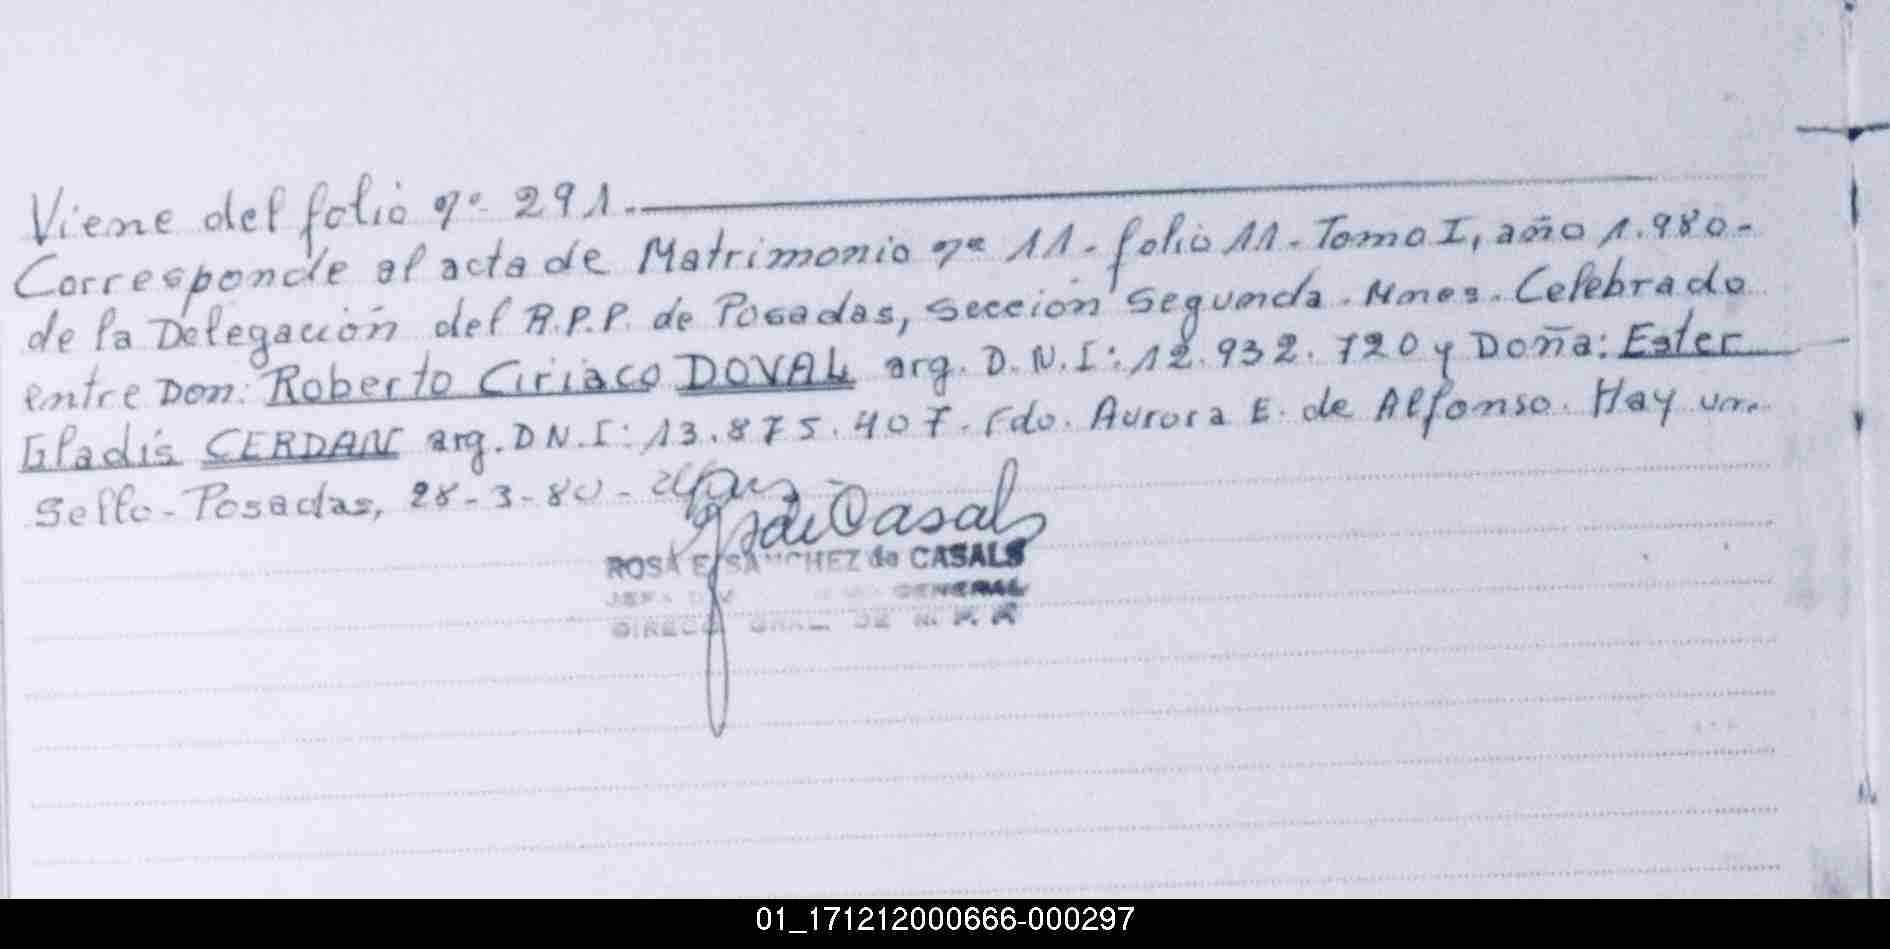 Viene del folio nº 291.
Corresponde al acta de Matrimonio nº 11. folio 11. Tomo I, año 1.980.
de la Delegación del R.P.P. de Posadas, Sección Segunda. Mnes. Celebrado
entre Don: Roberto Ciriaco DOVAL arg. D.N.I: 12.932.720 y Doña: Ester
Gladis CERDAN arg. D.N.I: 13.875.407. Fdo. Aurora E. de Alfonso. Hay un
Sello - Posadas, 28-3-80 -
de Casals
ROSA E SANCHEZ de CASALS
GENERAL
DIRECC GRAL. DE R. P. P.
01_171212000666-000297